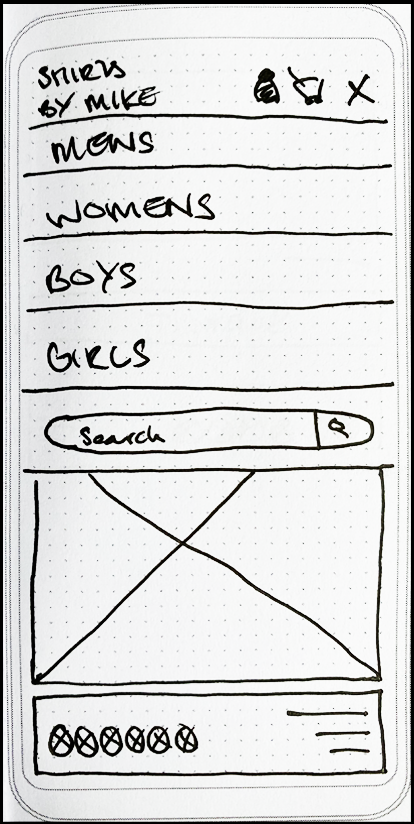 SHIRTS
BY MIKE
MENS
WOMENS
BOYS
GIRLS
Search